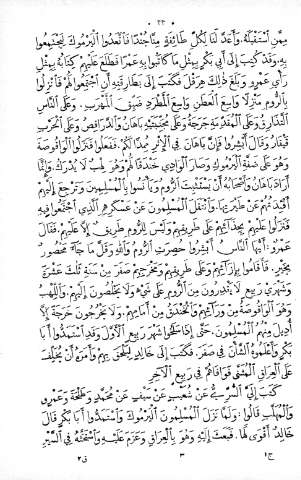 ٢٣
ممن استقبله وأعد لنا لكل طائفة منا جندا فاتعدوا اليرموك ليجتمعوا
به وقد كتب إلى أبي بكر بمثل ما كاتبوا به عمرا فطلع عليهم كتابه بمثل
رأي عمرو وبلغ ذلك هرقل فكتب إلى بطارقته أن اجتمعوا لهم فانزلوا
بالروم منزلا واسع العطن واسع المطرد ضيق المهرب وعلى الناس
التذارق وعلى المقدمة جرجة وعلى مجنبتيه باهان والدراقص وعلى الحرب
فيقار وقال أبشروا فإن باهان في الأثر مددا لكم ففعلوا فنزلوا الواقوصة
وهو على ضفة اليرموك وصار الوادي خندقا لهم وهو لهب لا يدرك وإنما
أراد باهان وأصحابه أن يستفيق الروم ويأنسوا بالمسلمين وترجع إليهم
أفئدتهم عن طيرتها. وانتقل المسلمون عن عسكرهم الذي اجتمعوا فيه
فنزلوا عليهم بحذائهم على طريقهم وليس للروم طريق إلا عليهم. فقال
عمرو: أيها الناس أبشروا حصرت الروم والله وقل ما جاء محصور
بخير. فأقاموا بإزائهم وعلى طريقهم ومخرجهم صفر من سنة ثلاث عشرة
وشهري ربيع لا يقدرون من الروم على شيء ولا يخلصون إليهم. واللهب
وهو الواقوصة من ورائهم والخندق من أمامهم ولا يخرجون خرجة إلا
أديل المسلمون منهم. حتى إذا سلخوا شهر ربيع الأول وقد استمدوا أبا
بكر وأعلموه الشأن في صفر. فكتب إلى خالد ليلحق بهم وأمره أن يخلف
على العراق المثنى فوافاهم في ربيع الآخر
كتب إلي السري عن شعيب عن سيف عن محمد وطلحة وعمرو
والمهلب قالوا: ولما نزل المسلمون اليرموك واستمدوا أبا بكر قال
خالد أقوى لها. فبعث إليه وهو بالعراق وعزم عليه واستحثه في السير
ج١
٣
ق٢